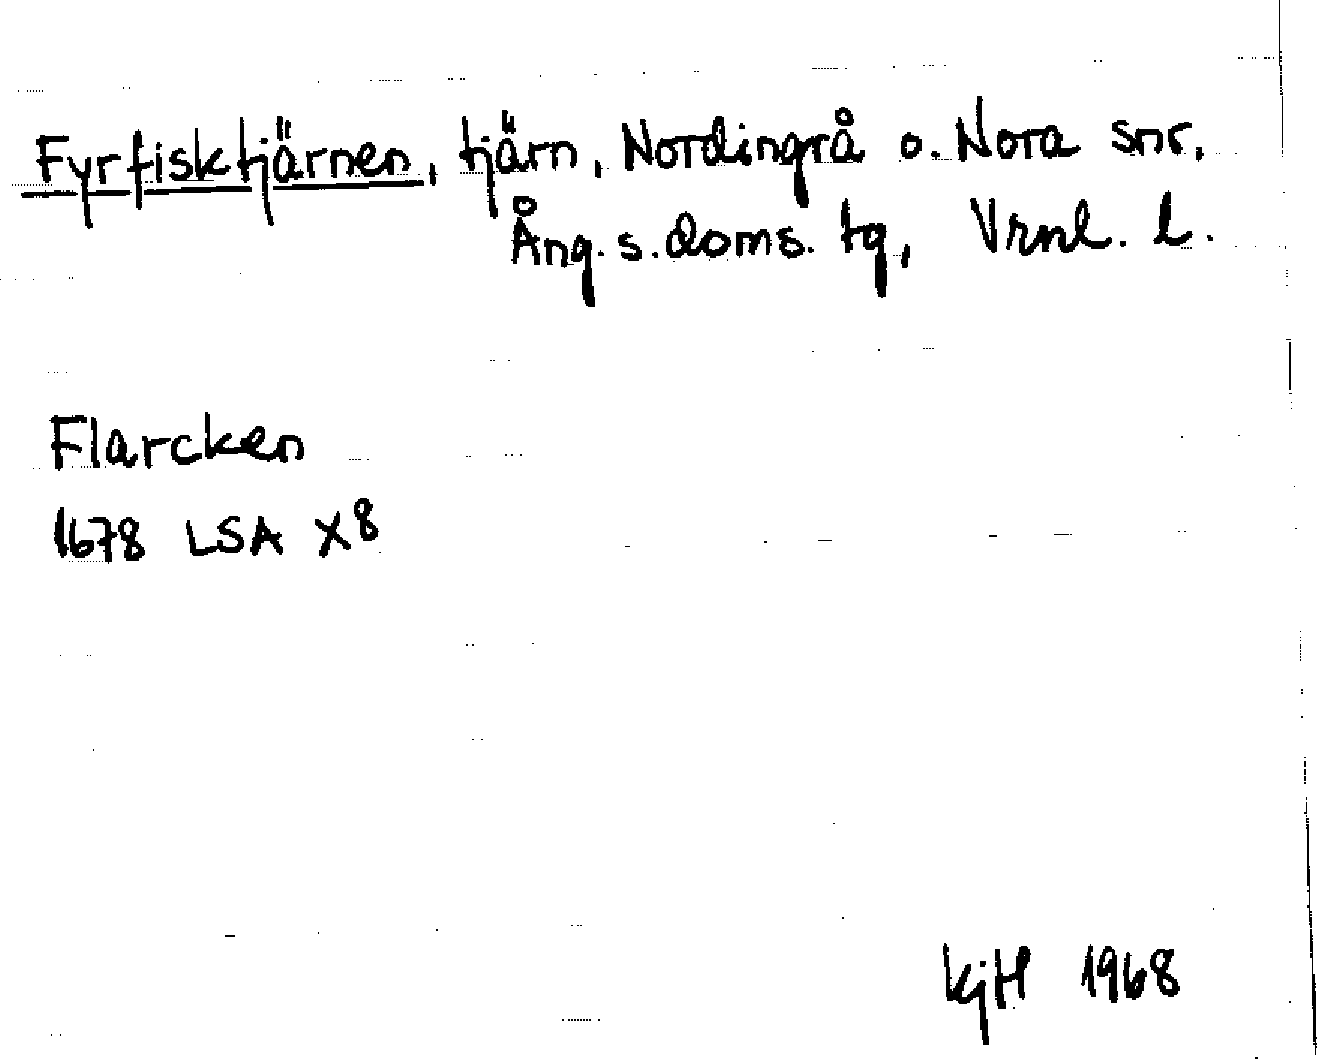 Fyrfisktjärnen, tjärn, Nordingrå o. Nora snr,
Ång. s. doms. tg, Vrnl. l.
Flarcken
1678 LSA X8
KjH 1968